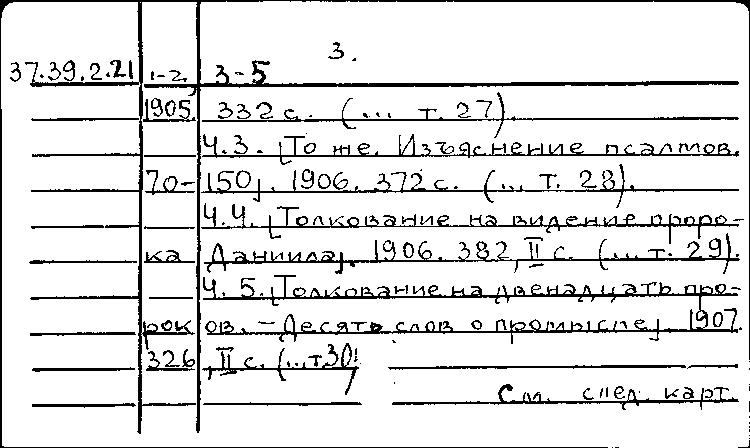 3.
37.39.2.21 1-2, 3-5
1905, 332 с. (... т. 27).
Ч.3. [То же. Изъяснение псалмов.
70-150]. 1906. 372 с. (... т. 28).
Ч.4. [Толкование на видение проро-
ка Даниила]. 1906. 382, II с. (... т. 29).
Ч. 5. [Толкование на двенадцать про-
роков. - Десять слов о промысле]. 1907.
326, II с. (... т. 30)
См. след. карт.